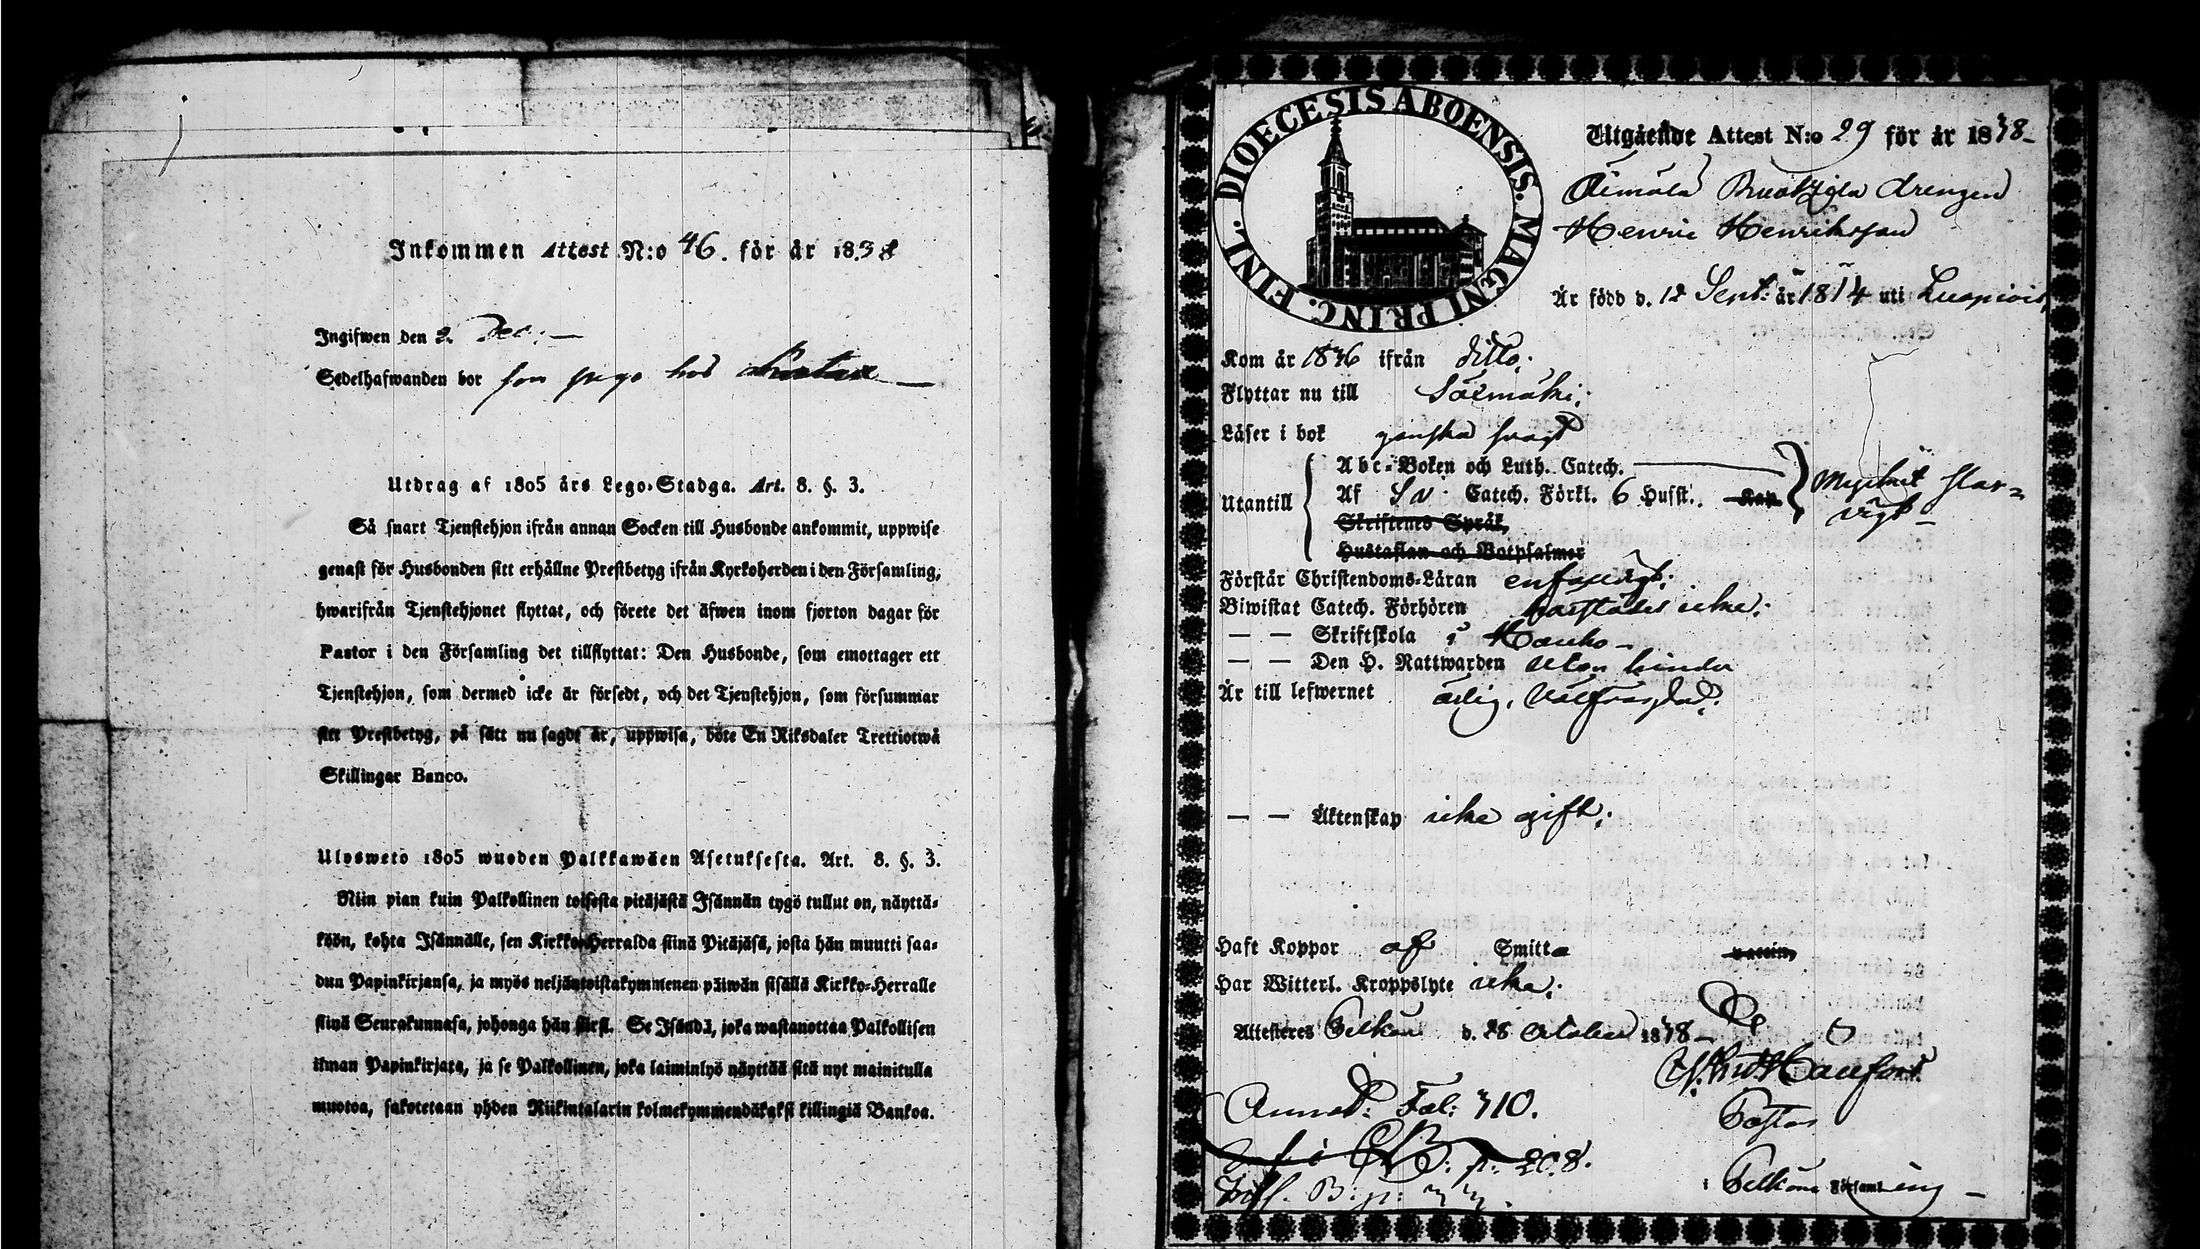 Inkommen Attest N:o 46. för år 1838
Ingifwen den 2 Dec:
Sedelhafwanden bor som piga hos
Utdrag af 1805 års Lego-Stadga. Art. 8. §. 3.
Så snart Tjenstehjon ifrån annan Socken till Husbonde ankommit, uppwise
genast för Husbonden sitt erhållne Prestbetyg ifrån Kyrkoherden i den Församling,
hwarifrån Tjenstehjonet flyttat, och förete det äfwen inom fjorton dagar för
Pastor i den Församling det tillflyttat: Den Husbonde, som emottager ett
Tjenstehjon, som dermed icke är försedt, och det Tjenstehjon, som försummar
sitt Prestbetyg, på sätt nu sagdt är, uppwisa, böte En Riksdaler Trettiotwå
Skillingar Banco.
Ulosweto 1805 wuoden Palkkawäen Asetuksesta. Art. 8. §. 3.
Niin pian kuin Palkollinen toisesta pitäjästä Isännän tygö tullut on, näyttä-
köön, kohta Isännälle, sen Kirkko-Herralda siinä Pitäjäsä, josta hän muutti saa-
dun Papinkirjansa, ja myös neljäntoistakymmenen päiwän sisällä Kirkko-Herralle
siinä Seurakunnasa, johonga hän siirsi. Se Isändä, joka wastanottaa Palkollisen
ilman Papinkirjata, ja se Palkollinen, joka laiminlyö näyttää sitä nyt mainitulla
muotoa, sakotetaan yhden Riikintalarin kolmekymmendäkaksi killingiä Bankoa.
DIOECESIS ABOENSIS. MAGNI PRINC. FINL.
Utgående Attest N:o 29 för år 1838
drengen
Henric Henriksson
Är född d. 12 Sept: år 1814 uti Luopiois
Kom år 1836 ifrån ditto.
Flyttar nu till Sääsmäki.
Läser i bok ganska svagt
Abc-Boken och Luth. Catech.
Utantill Af Sv. Catech. Förkl. 6 Husst. Kap. Mycket slar-
vigt
Skriftenes Språk,
Hustaflan och Botpsalmer
Förstår Christendoms-Läran enfaldigt.
Biwistat Catech. Förhören härstädes icke.
— — Skriftskola i Hauho
— — Den H. Nattwarden utan hinder
Är till lefwernet ärlig, välfrägdad.
— — Äktenskap icke gift.
Haft Koppor af Smitta vaccin,
Har Witterl. Kroppslyte icke.
Attesteres Pelkäne d. 28 October 1838
Pastor
i Pelkäne Församling
Annot: Fol: 310.
B: p. 208.